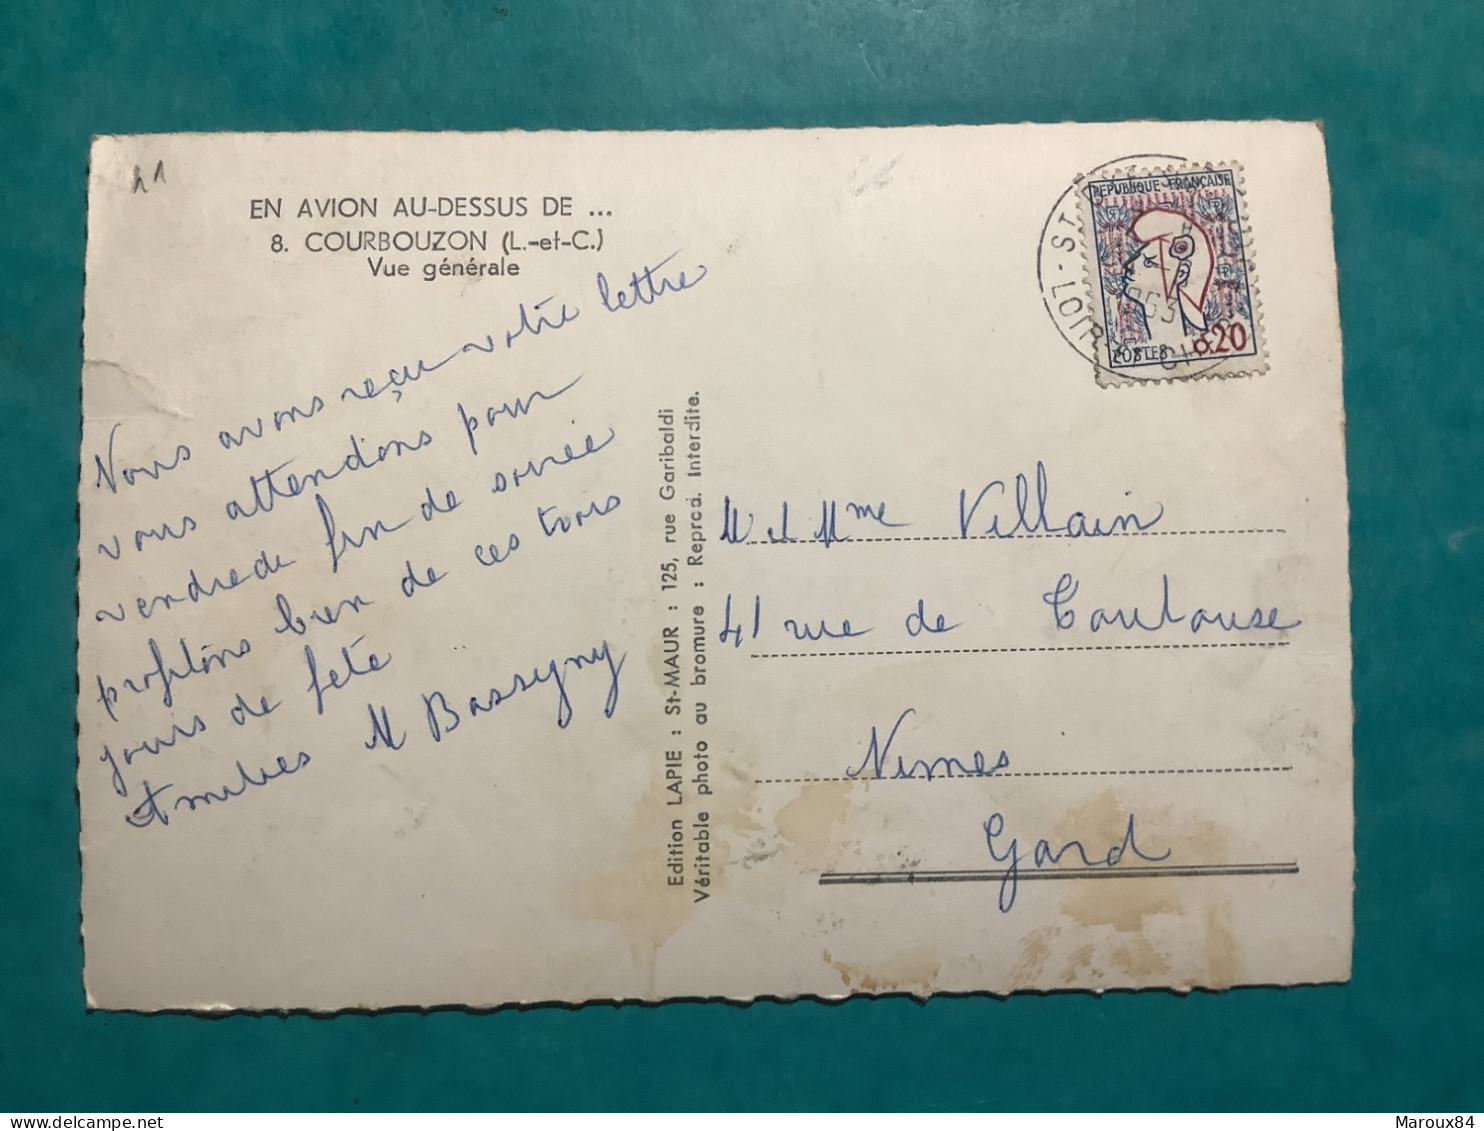 41
EN AVION AU-DESSUS DE ...
8. COURBOUZON (L.-et-C.)
Vue générale
Nous avons reçu votre lettre
vous attendons pour
vendredi fin de soirée
profitons bien de ces trois
jours de fête
Amitiés M Bassigny
Edition LAPIE : St-MAUR : 125, rue Garibaldi
Véritable photo au bromure : Reprod. Interdite.
REPUBLIQUE FRANÇAISE
POSTES 0.20
LOIR ET CHER
M et Mme Villain
41 rue de Toulouse
Nimes
Gard
Maroux84